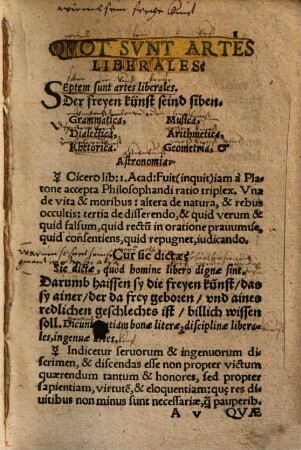 QVOT SVNT ARTES
LIBERALES.
Septem sunt artes liberales.
Der freyen künst seind siben.
Grammatica, Musica,
Dialectica, Arithmetica,
Rhetorica, Geometria,
Astronomia.
Cicero lib: 1. Acad: Fuit (inquit) iam à Pla⸗
tone accepta Philosophandi ratio triplex. Vna
de vita & moribus: altera de natura, & rebus
occultis: tertia de disserendo, & quid verum &
quid falsum, quid rectū in oratione prauumue,
quid consentiens, quid repugnet, iudicando.
Cur sic dictæ?
Sic dictæ, quod homine libero dignæ sint.
Darumb haissen sy die freyen künst / das
sy ainer / der da frey geboren / vnd aines
redlichen geschlechts ist / billich wissen
soll. Dicuntur etiam bonæ literæ, disciplinæ libera⸗
les, ingenuæ artes.
Indicetur seruorum & ingenuorum di⸗
scrimen, & discendas esse non propter victum
quærendum tantum & honores, sed propter
sapientiam, virtutē, & eloquentiam: quę res di⸗
uitibus non minus sunt necessariæ, q̃ pauperib.
A v QVÆ